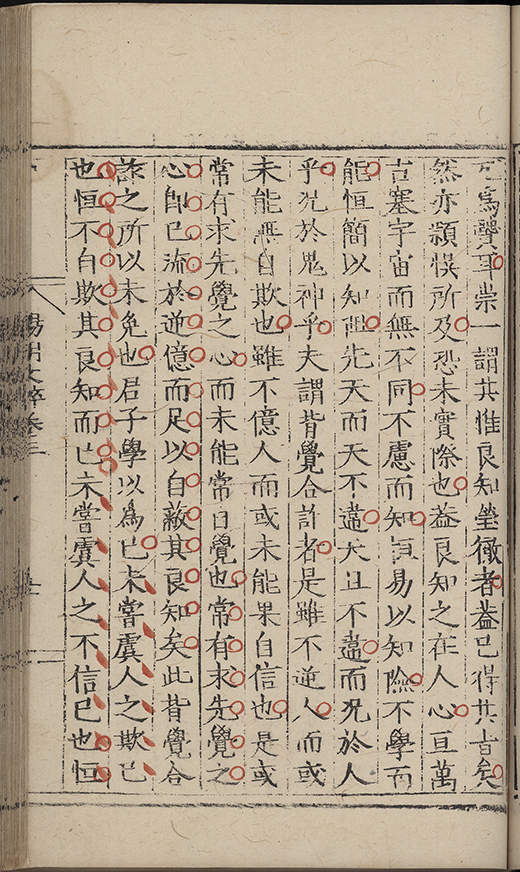 爲聾耳崇一謂其惟良知瑩徹者蓋已得其旨矣
然亦潁悞所及恐未實際也蓋良知之在人心亘萬
古塞宇宙而無不同不慮而知恒易以知險不學而
能恒簡以知阻先天而天不違天且不違而況於人
乎況於鬼神乎夫謂背覺合詐者是雖不逆人而或
未能無自欺也雖不億人而或未能果自信也是或
常有求先覺之心而未能常自覺也常有求先覺之
心即已流於逆億而足以自蔽其良知矣此背覺合
詐之所以未免也君子學以爲己未嘗虞人之欺己
也恒不自欺其良知而已未嘗虞人之不信己也恒
陽明文粹卷三